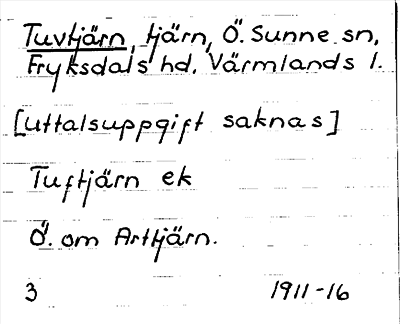 Tuvtjärn, tjärn, Ö. Sunne sn,
Fryksdals hd. Värmlands l.
[uttalsuppgift saknas]
Tuftjärn ek
Ö. om Arttjärn.
3 1911-16